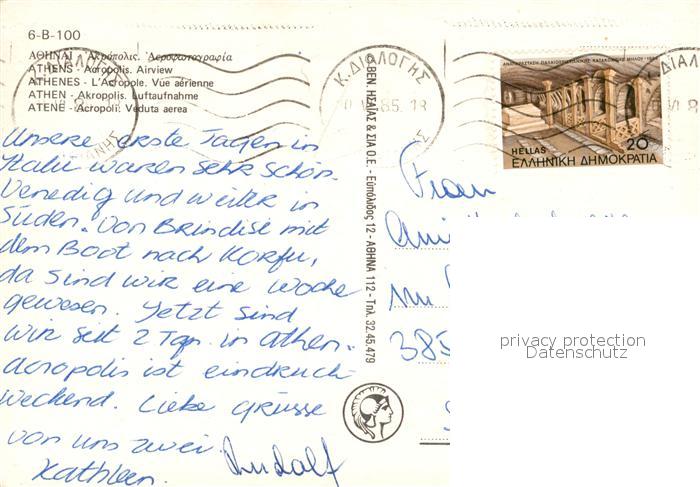 6-B-100
ΑΘΗΝΑΙ - Ἀκρόπολις. Ἀεροφωτογραφία
ATHENS - Acropolis. Airview
ATHENES - L'Acropole. Vue aérienne
ATHEN - Akropolis. Luftaufnahme
ATENE - Acropoli: Veduta aerea
Unsere erste Tagen in
Italië waren sehr schön.
Venedig und weiter in
Süden. Von Brindisi mit
dem Boot nach Korfu,
da sind wir eine Woche
gewesen. Jetzt sind
wir seit 2 Tgn. in Athen.
Acropolis ist eindruck-
weckend. Liebe grüsse
von uns zwei.
Kathleen. Rudolf
ΒΕΝ. ΗΣΑΪΑΣ & ΣΙΑ Ο.Ε. - Εὐπόλιδος 12 - ΑΘΗΝΑ 112 - Τηλ. 32.45.479
Κ. ΔΙΑΛΟΓΗΣ
85. 18
ΔΙΑΛ
HELLAS 20
ΕΛΛΗΝΙΚΗ ΔΗΜΟΚΡΑΤΙΑ
Frau
385
privacy protection
Datenschutz